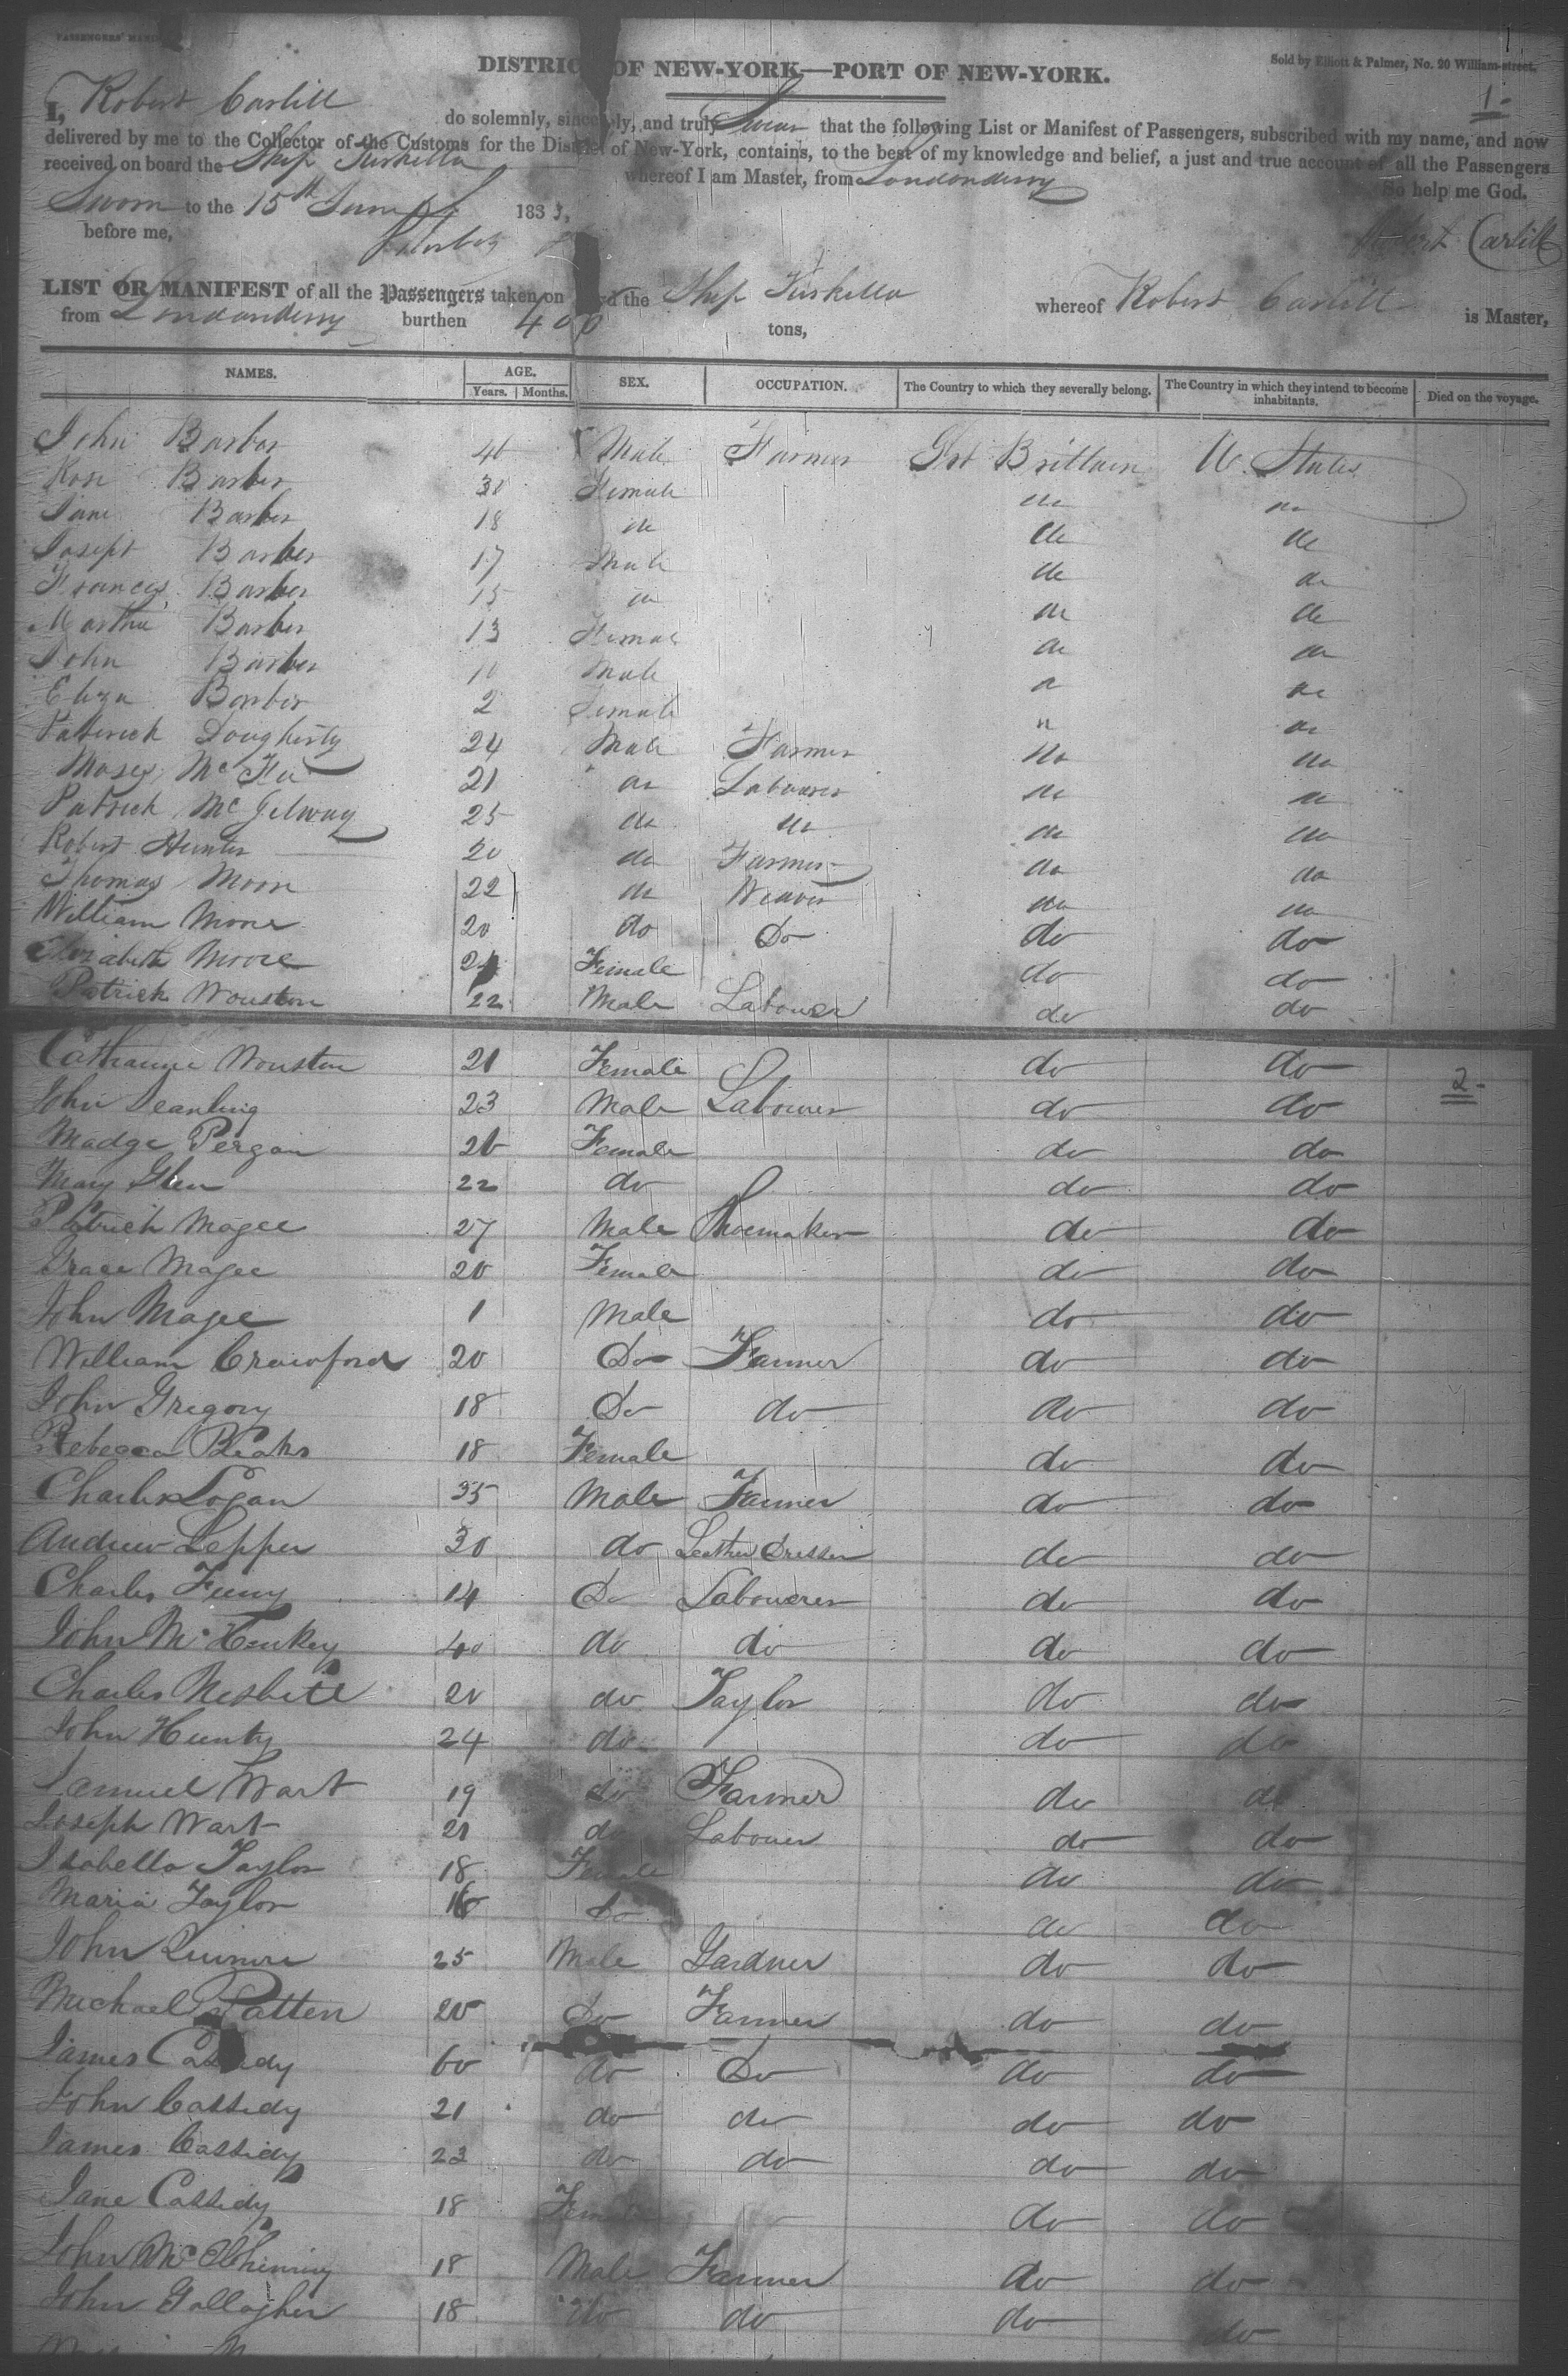 DISTRICT OF NEW-YORK—PORT OF NEW-YORK.
Sold by Elliott & Palmer, No. 20 William-street.
1-
I, Robert Carlill do solemnly, sincerely, and truly Swear that the following List or Manifest of Passengers, subscribed with my name, and now
delivered by me to the Collector of the Customs for the District of New-York, contains, to the best of my knowledge and belief, a just and true account of all the Passengers
received on board the Ship Tuskella whereof I am Master, from Londonderry
So help me God.
Sworn to the 15th June 1833,
before me,
Robert Carlill
LIST OR MANIFEST of all the Passengers taken on board the Ship Tuskella whereof Robert Carlill is Master,
from Londonderry burthen 400 tons,
NAMES. AGE. SEX. OCCUPATION. The Country to which they severally belong. The Country in which they intend to become inhabitants. Died on the voyage.
Years. Months.
John Barber 40 Male Farmer Grt Brittain U. States
Rose Barber 30 Female do do
Jane Barber 18 do do do
Joseph Barber 17 Male do do
Francis Barber 15 do do do
Martha Barber 13 Female do do
John Barber 10 Male do do
Eliza Barber 2 Female do do
Patterick Dougherty 24 Male Farmer do do
Moses McFee 21 do Labourer do do
Patrick McGelway 25 do do do do
Robert Hunter 20 do Farmer do do
Thomas Moore 22 do Weaver do do
William Moore 20 do Do do do
Elizabeth Moore 21 Female do do
Patrick Wouston 22 Male Labourer do do
Catharine Wouston 21 Female do do
2-
John 23 Male Labourer do do
Madge Pergan 20 Female do do
Mary Glen 22 do do do
Patrick Magee 27 Male Shoemaker do do
Grace Magee 20 Female do do
John Magee 1 Male do do
William Crawford 20 Do Farmer do do
John Gregory 18 Do do do do
Rebecca Beaks 18 Female do do
Charles Logan 35 Male Farmer do do
Andrew Lepper 30 do Leather Dresser do do
Charles Feeny 14 Do Labourer do do
John 40 do do do do
Charles Nesbitt 20 do Taylor do do
John Hunty 24 do do do
Samuel Wart 19 do Farmer do do
Joseph Wart 21 do Labourer do do
Isabella Taylor 18 Female do do
Maria Taylor 16 Do do do
John 25 Male Gardner do do
Michael Patten 20 Do Farmer do do
James Cassidy 60 do Do do do
John Cassidy 21 do do do do
James Cassidy 23 do do do do
Jane Cassidy 18 Female do do
John McElhinny 18 Male Farmer do do
John Gallagher 18 do do do do